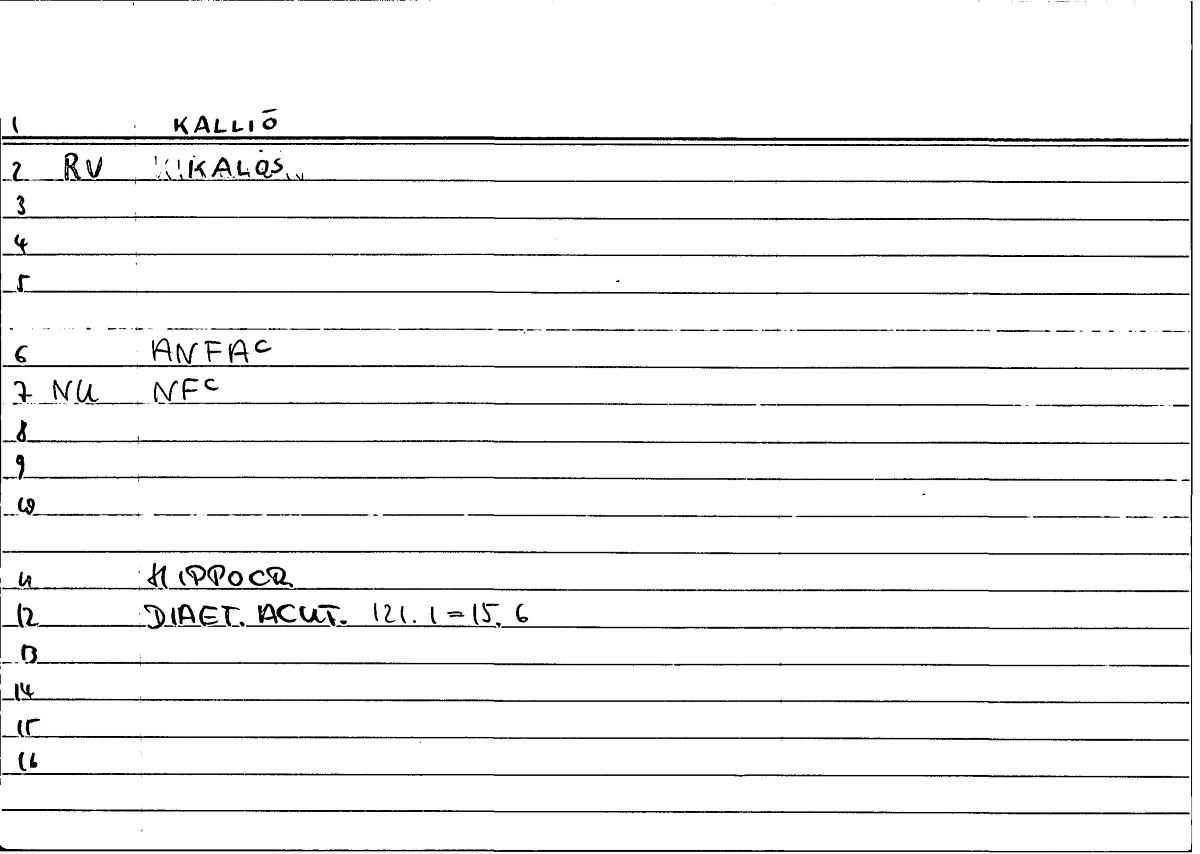 1 KALLIŌ
2 RV KALOS
3
4
5
6 ANFAC
7 NU NFC
8
9
10
11 HIPPOCR
12 DIAET. ACUT. 121. 1 = 15, 6
13
14
15
16